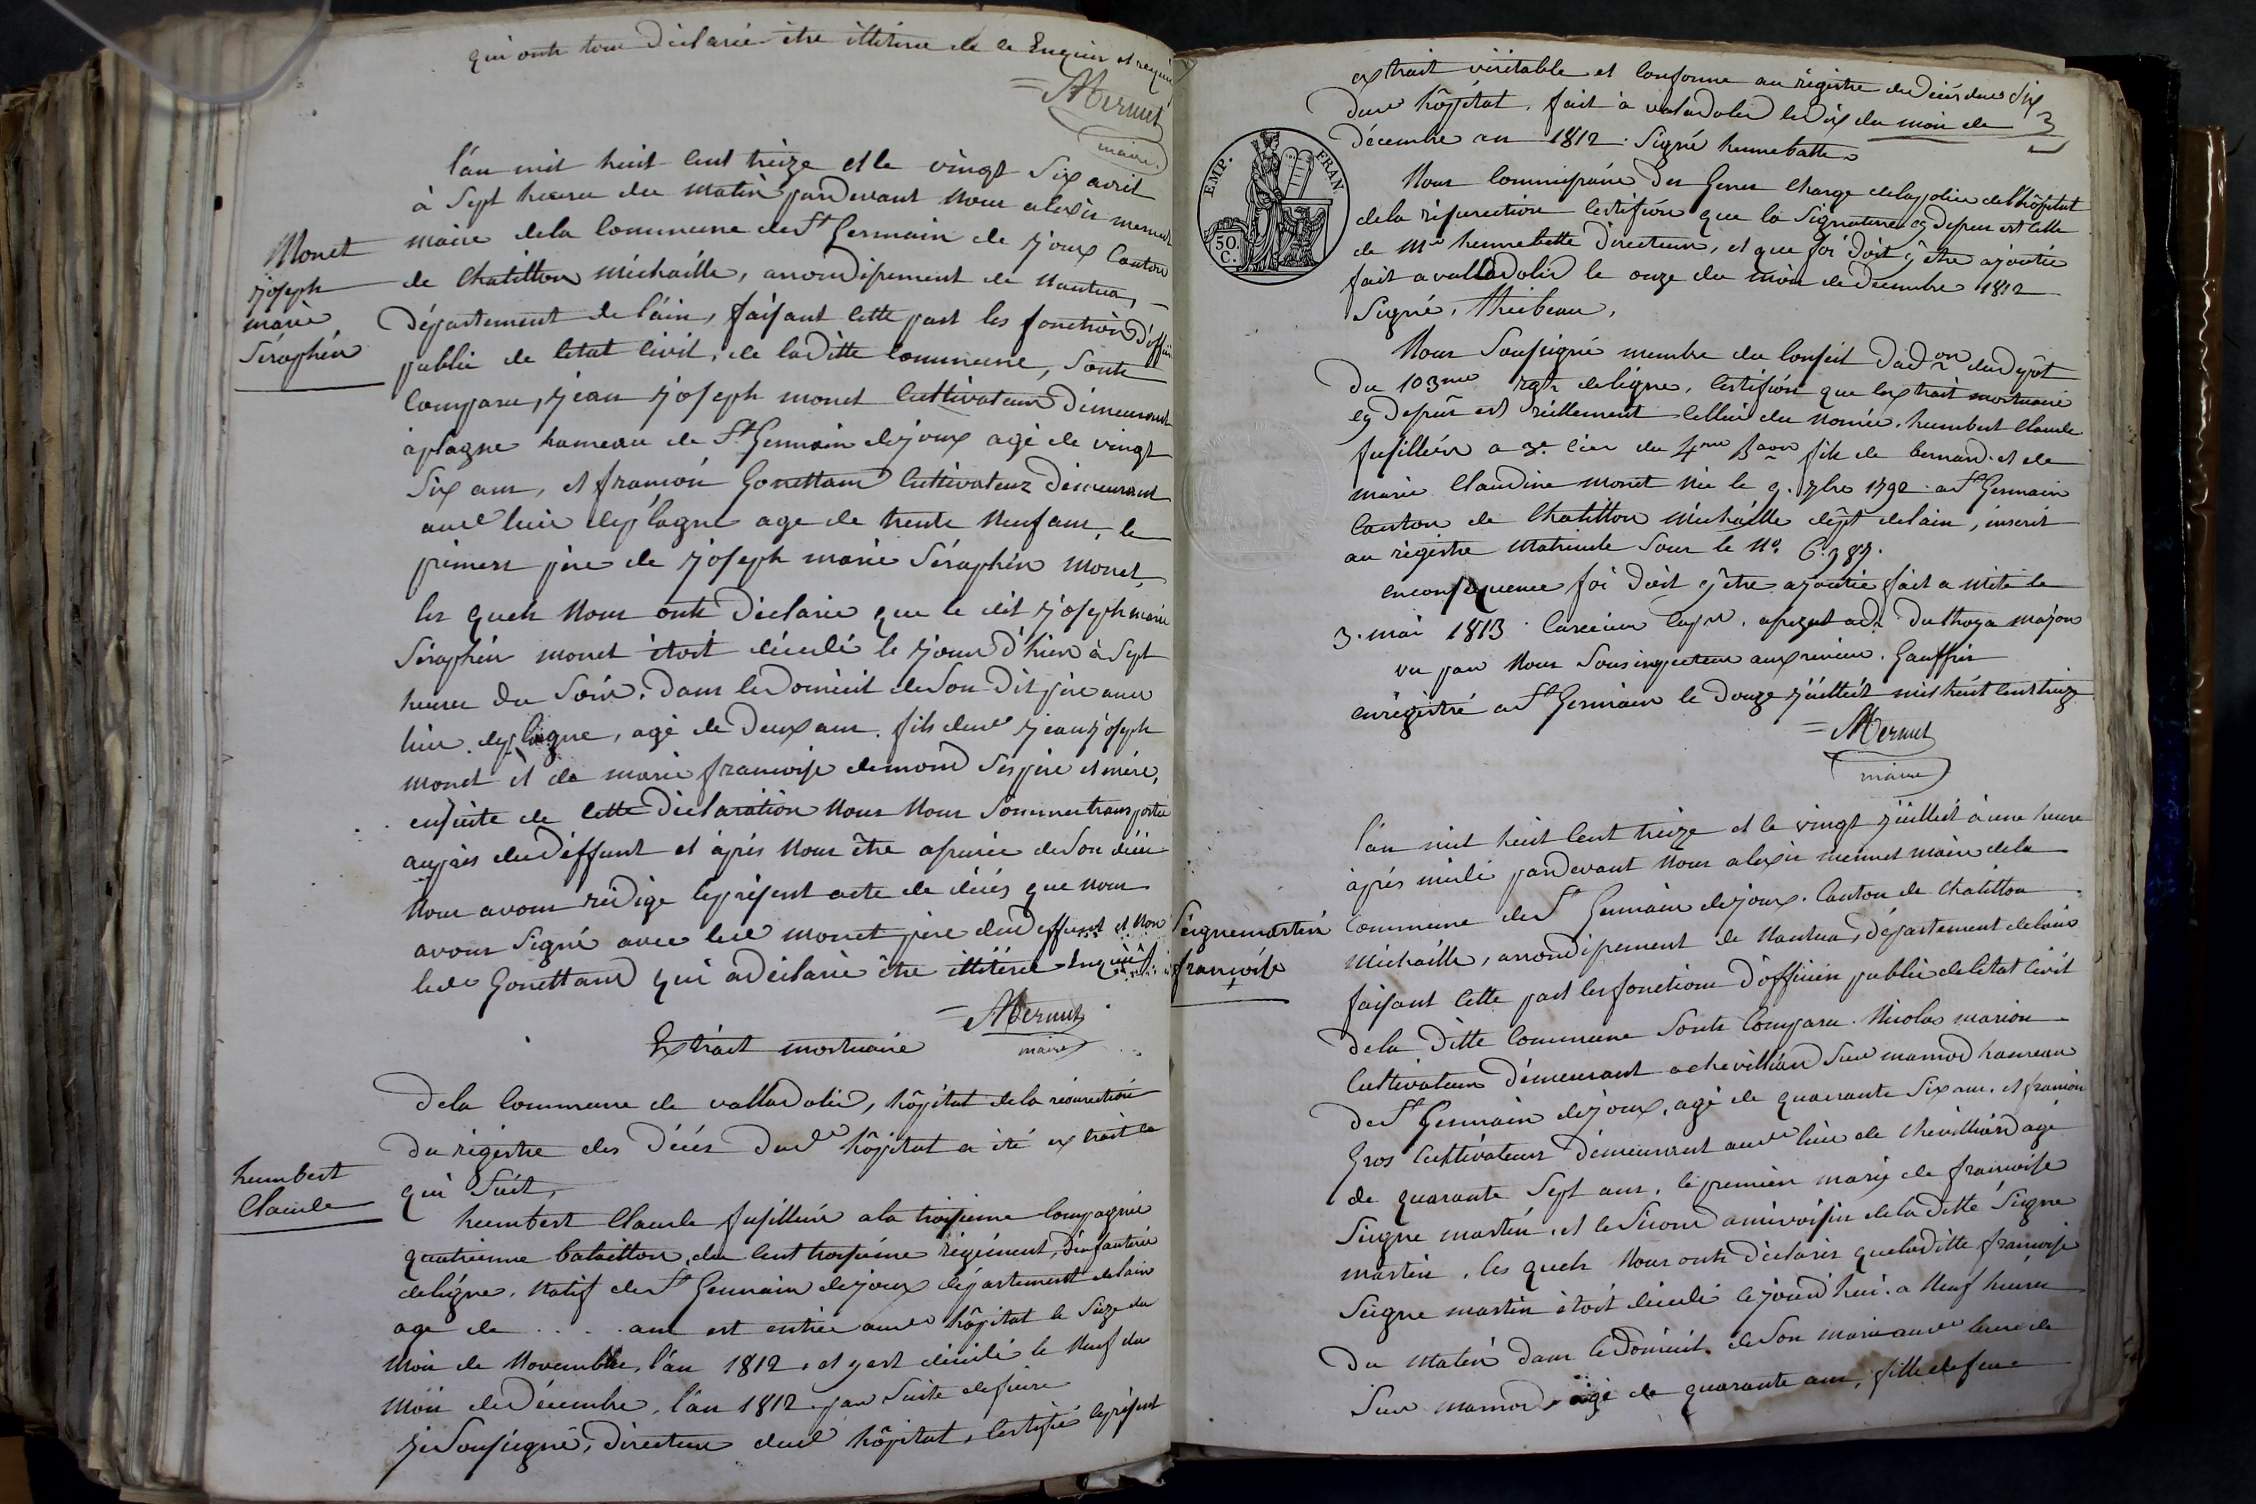 qui ont tous déclarée être illitéré de ce Enquis et requis
= AMermet
maire
l'an mil huit cent treize et le vingt six avril
à sept heures du matin pardevant nous alexis mermet
maire dela Commune de St Germain de joux Canton
de Chatillon michaille, arrondissement de Nantua,
département de l'ain, faisant cette part les fonctions d'officier
public de letat civil, de laditte commune, sonts
comparu, jean joseph monet Cultivateur demeurant
à plagne hameau de St Germain dejoux agé de vingt
six ans, et françois Gonettand Cultivateur demeurant
aud lieu deplagne age de trente neuf ans, le
premier père de joseph marie Séraphin monet,
les quels nous onts déclarée que le dit joseph marie
Séraphin monet étoit décédé le jour d'hier à sept
heures du soir, dans le domicil de son dit père aud
lieu deplagne, agé de deux ans. fils dud jean joseph
monet et de marie françoise demond ses père et mère,
ensuite de cette déclaration nous nous sommes transportée
auprès dudéffunt et après nous être assurée de son décès
nous avons rédigé leprésent acte de décès que nous
avons signé avec led monet père dud deffunt et non
led Gonettand qui a déclarée être illitéré Enquis
= AMermet
maire
Monet
joseph
marie
Séraphin
Extrait mortuaire
Dela Commune de valladolid, hôpital dela résurection
Du régistre des décés dud hôpital a été extrait ce
qui suit,
humbert
Claude
humbert Claude fusillier ala troisieme Compagnie
quatrieme bataillon, du cent troisiéme régiment d'infanterie
deligne. natif de St Germain dejoux département delain
age de . . . . ans est entrée aud hôpital le seize du
mois de Novembre, l'an 1812, et yest décédé le neuf du
mois de Décembre, l'an 1812 par suite defievre
je soussigné, directeur dud hôpital, certifié leprésent
extrait véritable et conforme au régistre de décés dud
dud hôpital. fait à valadolid le dix du mois de
Décembre an 1812. Signé hennebatte
six
3
EMP. FRAN
50.
C.
Nous Commissaire des Guerres chargé delapolice del'hôpital
dela résurection certifions que la Signature cy dessus est celle
de Mr hennebette directeur, et que foi doit y être ajoutée
fait a valladolid le onze du mois de Decembre 1812
Signé, Thiebeau,
Nous soussigné membre du Conseil dad.on du dépôt
Du 103me rgt deligne, certifions que lextrait mortuaire
cy dessus est réellement celluie du nomée humbert Claude
fusillier a 3e Cie du 4me Baon fils de bernard et de
marie Claudine monet née le 9. 7bre 1792. a St Germain
Canton de Chatillon Michaille dépt delain, inscrit
au régistre Matricule sous le No 6,387.
enconsequence foi doit y être ajoutée fait a metz le
3. mai 1813
vu par nous sousinspecteur aux revues. Gauffrin
enrégistré a St Germain le douze juillet mil huit cent treize
= AMermet
maire
l'an mil huit cent treize et le vingt juillet à une heure
après midi pardevant nous alexis mermet maire dela
Seignemartin
françoise
Commune de St Germain dejoux. Canton de Chatillon
Michaille, arrondissement de Nantua, département delain
faisant cette part les fonctions d'officier public deletat civil
dela ditte Commune sonts comparu. Nicolas marion
Cultivateur demeurant a chevilliard sur marnod hameau
de St Germain dejoux, agé de quarante six ans, et françois
Gros Cultivateur demeurant aud lieu de Chevilliard agé
de quarante sept ans, le premier marie de françoise
Seigne martin, et le second amievoisin dela ditte Seigne
martin, les quels nous onts déclarée que laditte françoise
Seigne martin étoit décédé cejourd'hui. a neuf heures
Du matin dans le domicil de son marie aud lieu de
Sur marnod agé de quarante ans, fille de feu